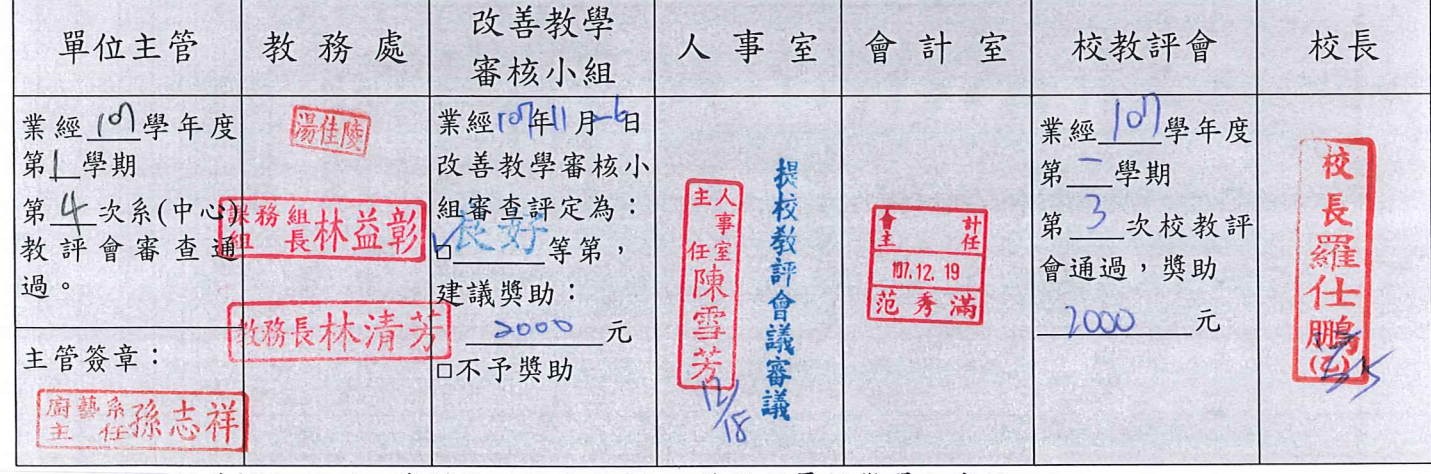 單位主管
教務處
改善教學
審核小組
人事室
會計室
校教評會
校長
業經107學年度
第1學期
第4次系(中心)
教評會審查通
過。
主管簽章：
廚藝系
主任孫志祥
湯佳陵
課務組
組長林益彰
教務長林清芳
業經107年11月26日
改善教學審核小
組審查評定為：
☑良好等第，
建議獎助：
2000元
□不予獎助
人事室
主任陳雪芳
12/18
提校教評會議審議
會計
主任
107.12.19
范秀滿
業經107學年度
第一學期
第3次校教評
會通過，獎助
2000元
校長羅仕鵬
(乙)